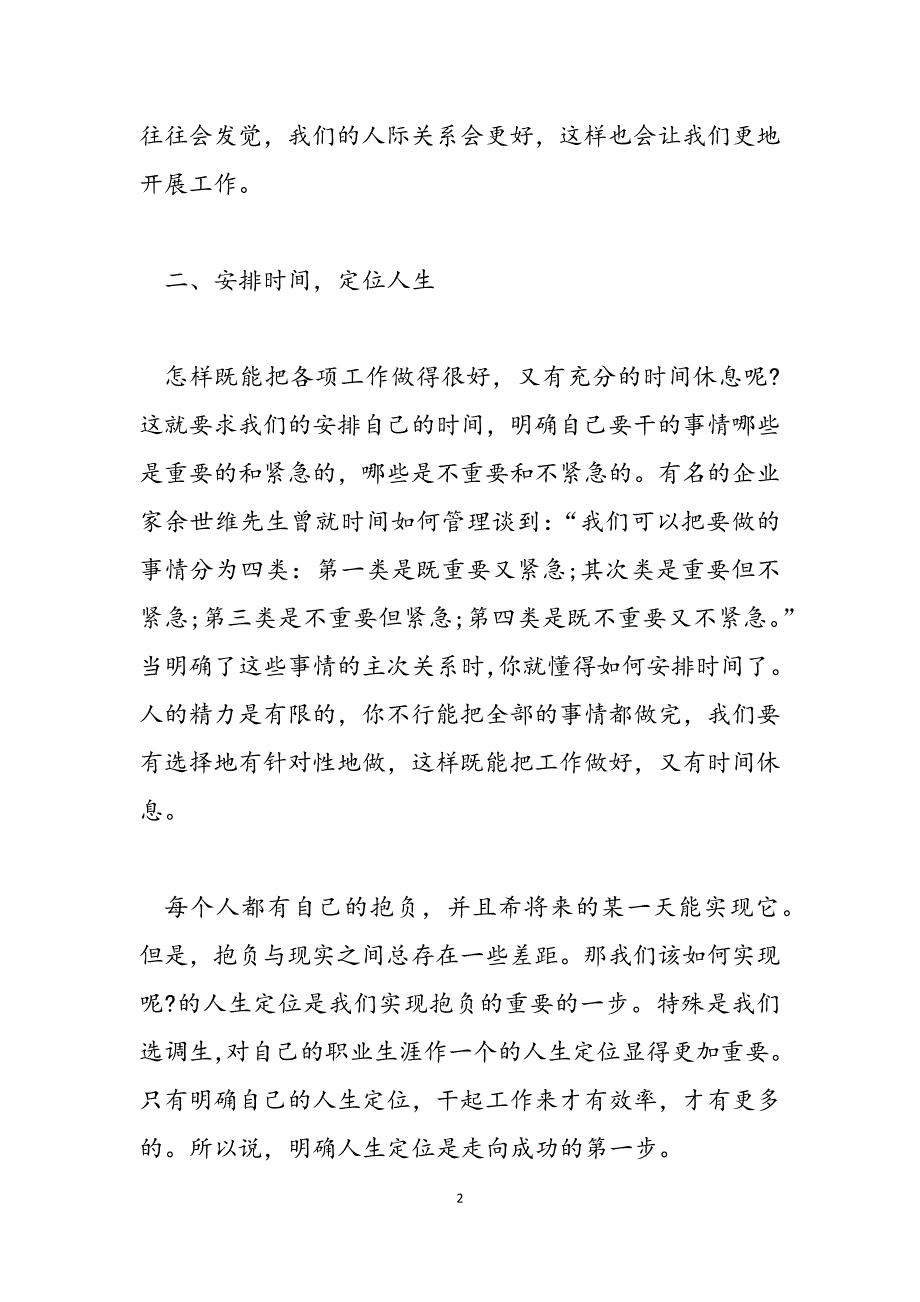 往往会发觉，我们的人际关系会更好，这样也会让我们更地
开展工作。
二、安排时间，定位人生
怎样既能把各项工作做得很好，又有充分的时间休息呢?
这就要求我们的安排自己的时间，明确自己要干的事情哪些
是重要的和紧急的，哪些是不重要和不紧急的。有名的企业
家余世维先生曾就时间如何管理谈到：“我们可以把要做的
事情分为四类：第一类是既重要又紧急;其次类是重要但不
紧急;第三类是不重要但紧急;第四类是既不重要又不紧急。”
当明确了这些事情的主次关系时,你就懂得如何安排时间了。
人的精力是有限的，你不行能把全部的事情都做完，我们要
有选择地有针对性地做，这样既能把工作做好，又有时间休
息。
每个人都有自己的抱负，并且希将来的某一天能实现它。
但是，抱负与现实之间总存在一些差距。那我们该如何实现
呢?的人生定位是我们实现抱负的重要的一步。特殊是我们
选调生,对自己的职业生涯作一个的人生定位显得更加重要。
只有明确自己的人生定位，干起工作来才有效率，才有更多
的。所以说，明确人生定位是走向成功的第一步。
2